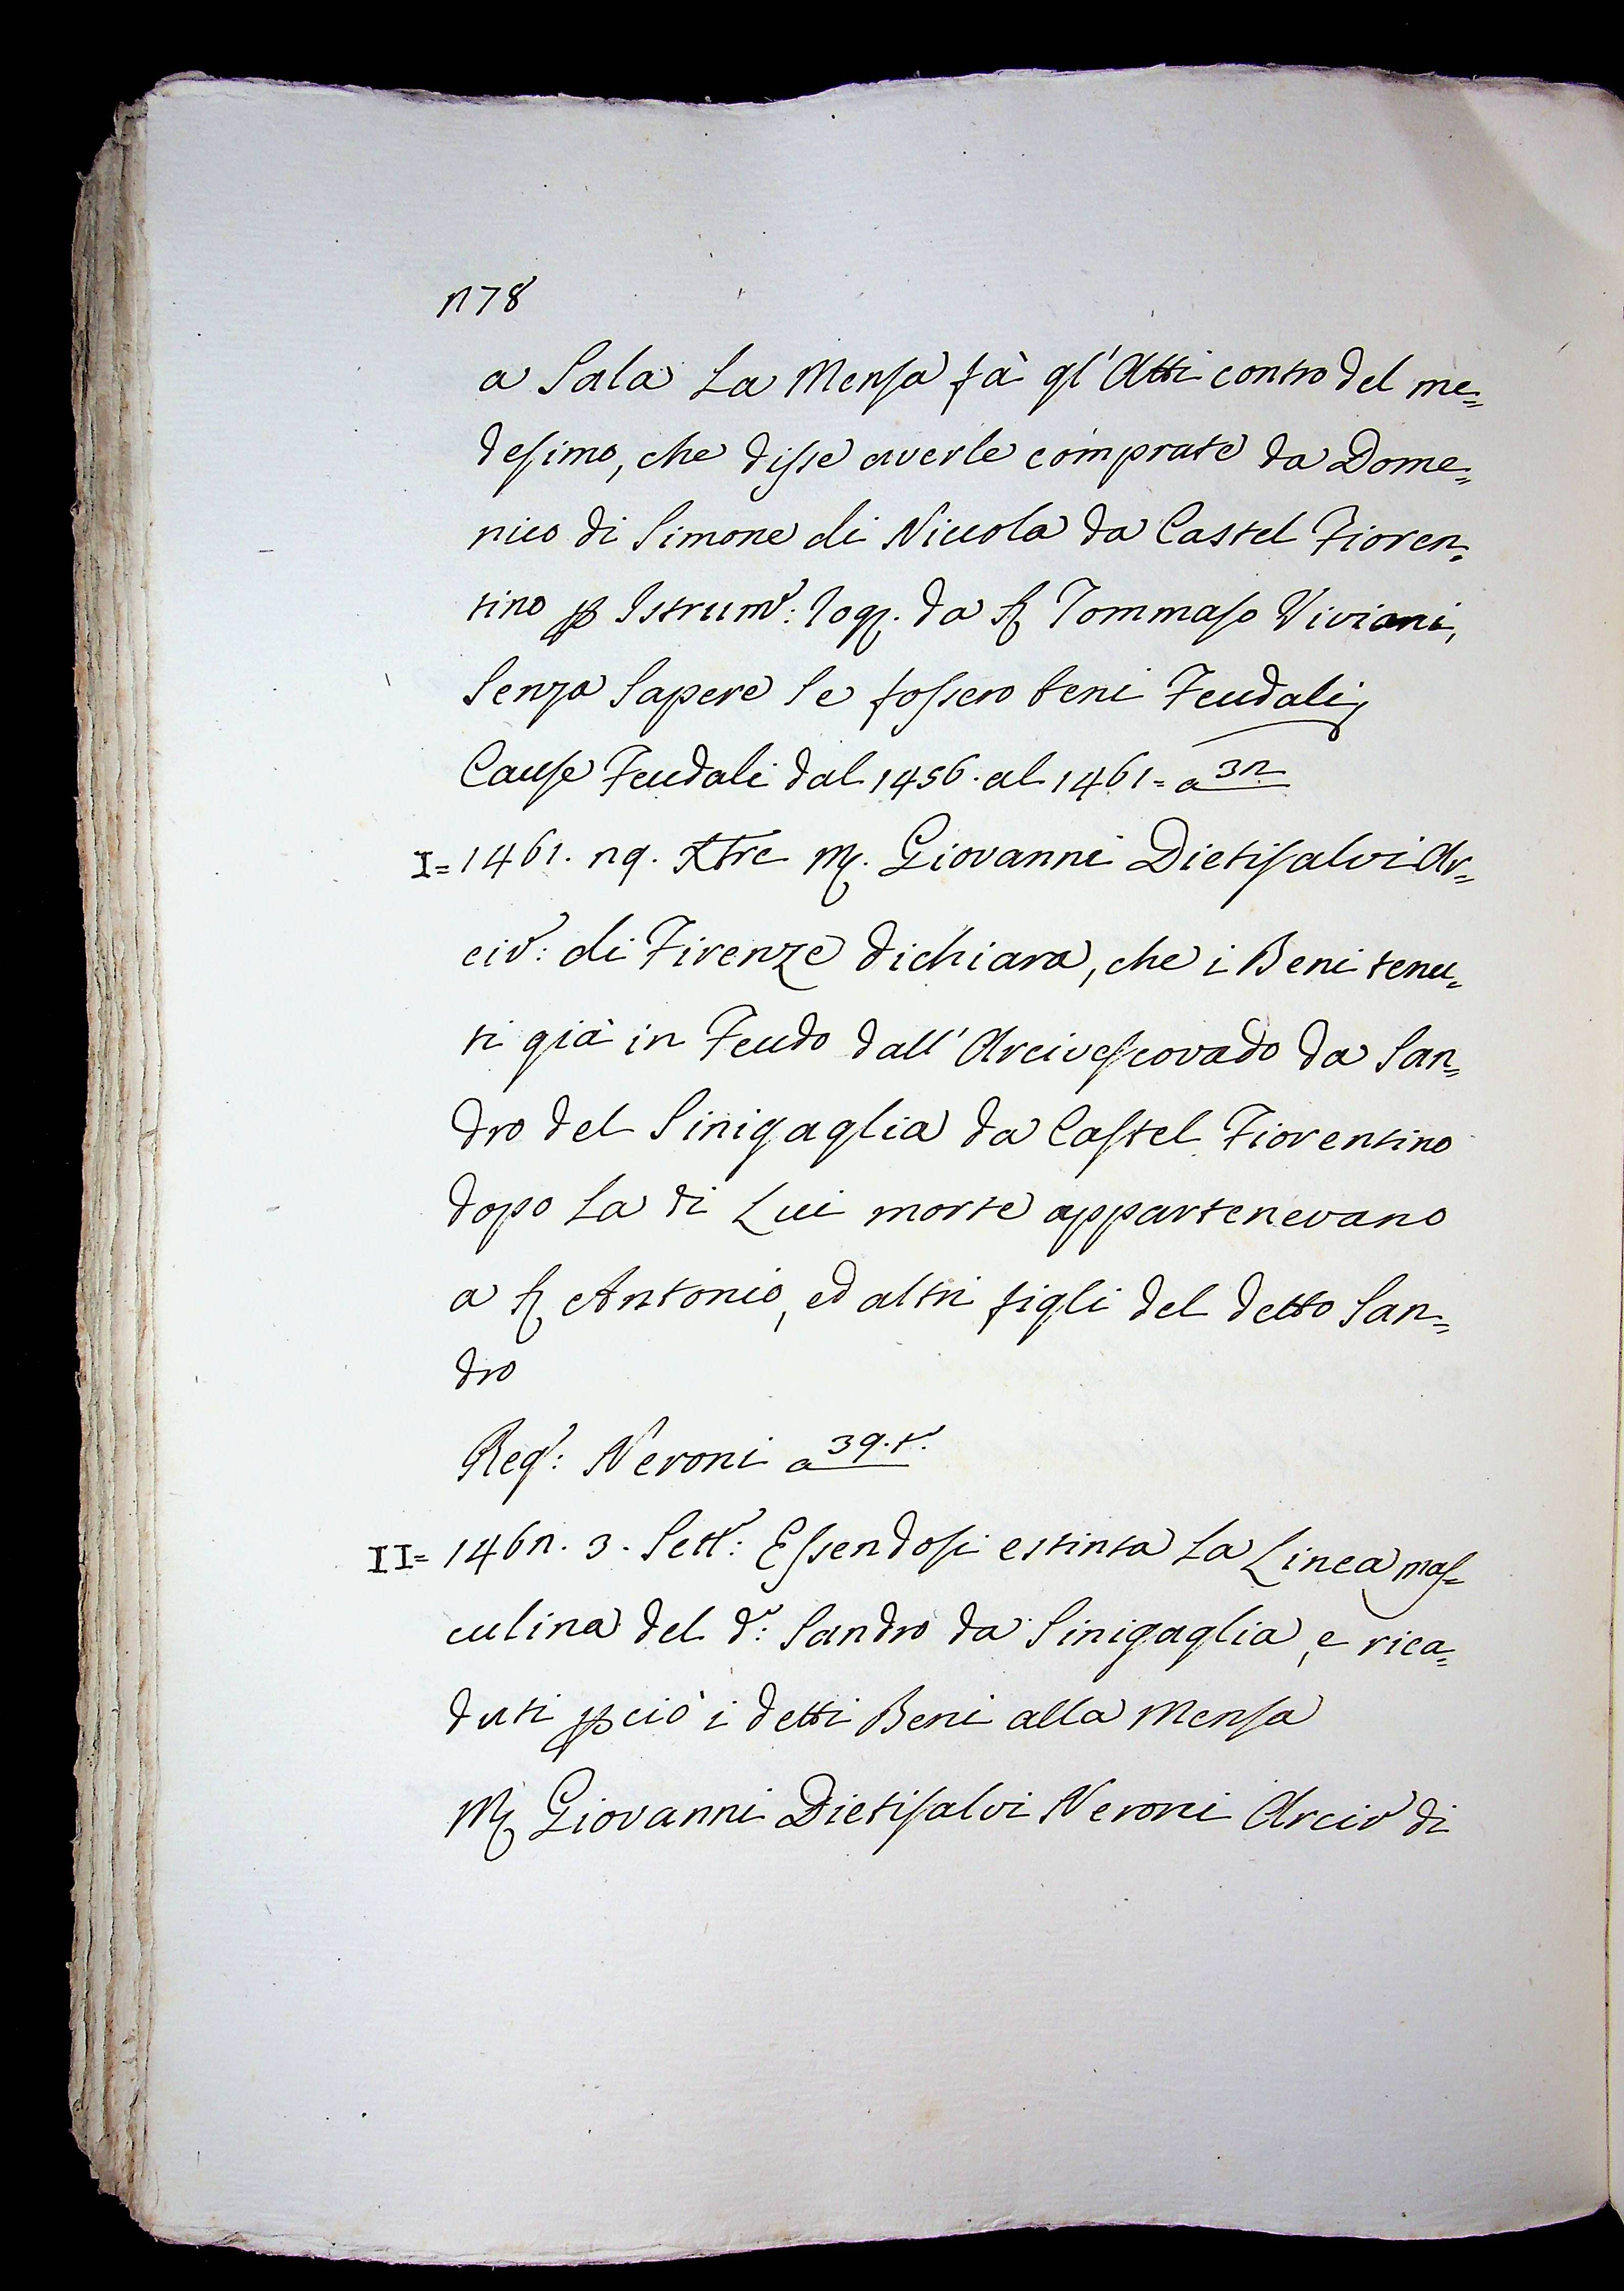 278
a Sala La Mensa fà gl'Atti contro del me=
desimo, che disse averle comprate da Dome=
nico di Simone di Niccola da Castel Fioren=
tino p Istrum: rog. da S Tommaso Viviani,
Senza Sapere Se fossero beni Feudali,
Cause Feudali dal 1456. al 1461= a 32
I= 1461. 29. Xbre M. Giovanni Dietisalvi Ar=
civ: di Firenze dichiara, che i Beni tenu=
ti già in Feudo dall'Arcivescovado da San=
dro del Sinigaglia da Castel Fiorentino
dopo La di Lui morte appartenevano
a S Antonio, ed altri figli del detto San=
dro
Reg: Neroni a 39. t.
II= 1462. 3. Sett: Essendosi estinta La Linea mas=
culina del d: Sandro da Sinigaglia, e rica=
duti pciò i detti Beni alla Mensa
M Giovanni Dietisalvi Neroni Arciv di